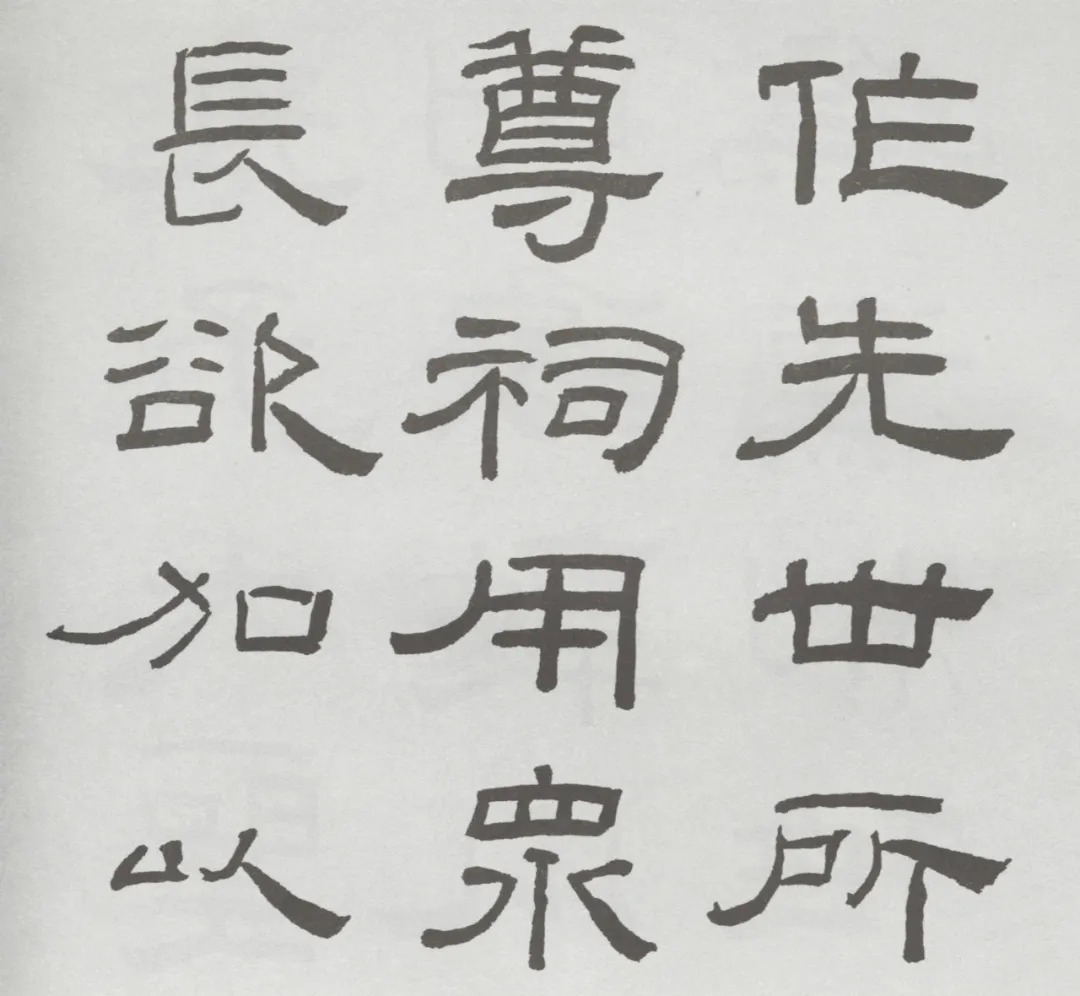 作先世所
尊祠用眾
長欲加以